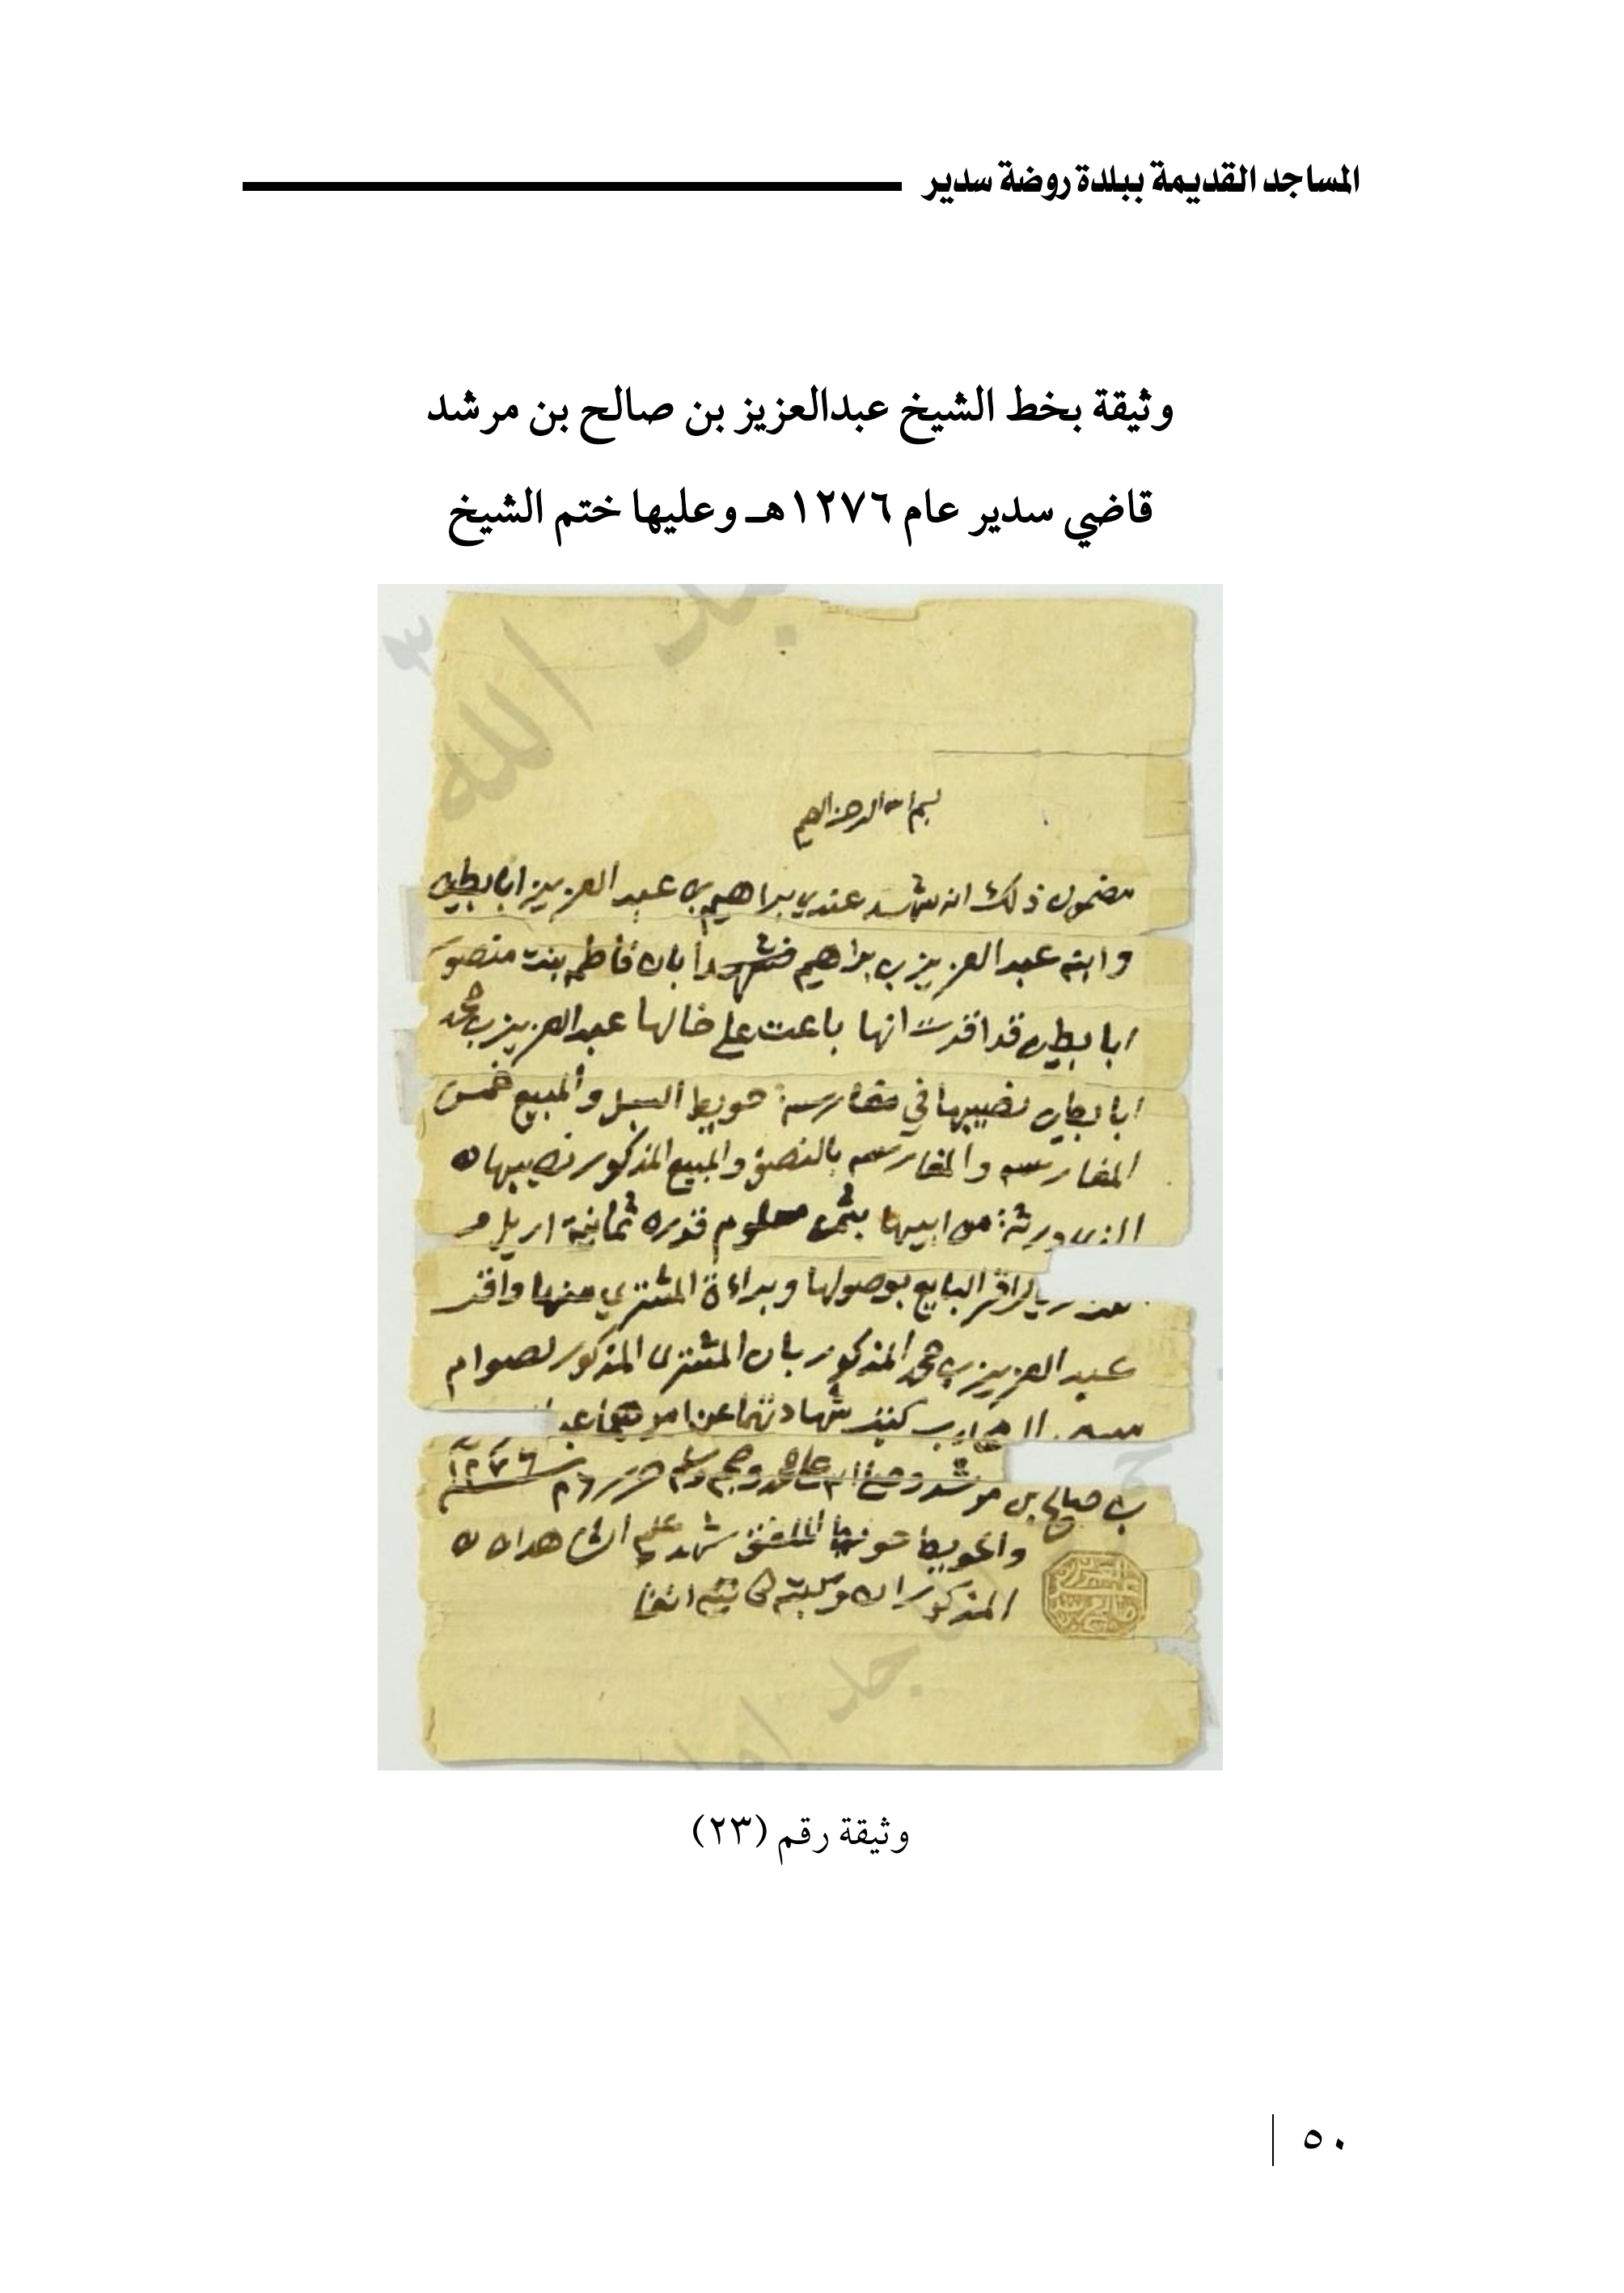 المساجد القديمة ببلدة روضة سدير
وثيقة بخط الشيخ عبدالعزيز بن صالح بن مرشد
قاضي سدير عام ١٢٧٦هـ وعليها ختم الشيخ
بسم الله الرحمن الرحيم
مضمون ذلك انه شهد عندي براهيم بن عبد العزيز ابابطين
وابنه عبد العزيز بن براهيم فشهدا بان فاطمه بنت منصور
ابابطين قد اقرت انها باعت على خالها عبد العزيز بن محمد
ابابطين نصيبها في مغارسة حويط السبل والمبيع خمس
المغارسه والمغارسه بالنصف والمبيع المذكور نصيبها
الذي ورثة من ابيها بثمن معلوم قدره ثمانية اريل و
ريال اقر البايع بوصولها وبراءة المشتري منها واقر
عبد العزيز بن محمد المذكور بان المشترى المذكور لصوام
كتبه شهادتهما عن امرهما
بن صالح بن مرشد وصلى الله على محمد وصحبه وسلم ٢٦ سنة ١٢٧٦
والحويط شهد عليه الشاهدان
المذكوران
وثيقة رقم (٢٣)
٥٠